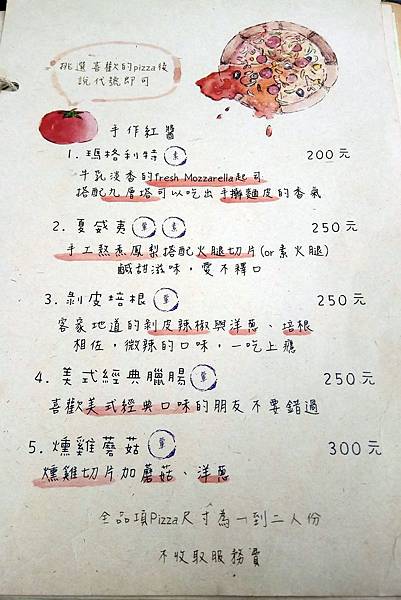 挑選喜歡的pizza後
說代號即可
手作紅醬
1. 瑪格利特 素 200元
牛乳淡香的fresh Mozzarella起司
搭配九層塔可以吃出手擀麵皮的香氣
2. 夏威夷 葷 素 250元
手工熬煮鳳梨搭配火腿切片(or素火腿)
鹹甜滋味,愛不釋口
3. 剝皮培根 葷 250元
客家地道的剝皮辣椒與洋蔥、培根
相佐,微辣的口味,一吃上癮
4. 美式經典臘腸 葷 250元
喜歡美式經典口味的朋友不要錯過
5. 燻雞蘑菇 葷 300元
燻雞切片加蘑菇、洋蔥
全品項Pizza尺寸為一到二人份
不收取服務費